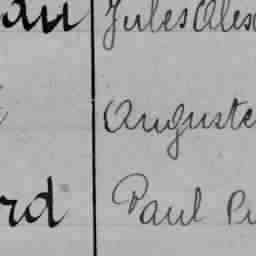 au Jules Alex
Auguste
rd Paul Pi